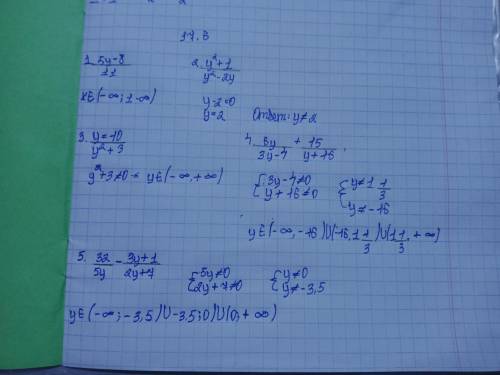 17.3
1. (5y-8)/11
x∈(-∞; 1-∞)
2. (y²+1)/(y²-2y)
y-2=0
y=2
Ответ: y≠2
3. (y=10)/(y²+3)
y²+3≠0 - y∈(-∞,+∞)
4. 6y/(3y-4) + 15/(y+16)
{3y-4≠0
{y+16≠0
{y≠1 1/3
{y≠-16
y∈(-∞,-16)U(-16,1 1/3)U(1 1/3,+∞)
5. 32/5y - (3y+1)/(2y+7)
{5y≠0
{2y+7≠0
{y≠0
{y≠-3,5
y∈(-∞;-3,5)U-3,5;0)U(0;+∞)